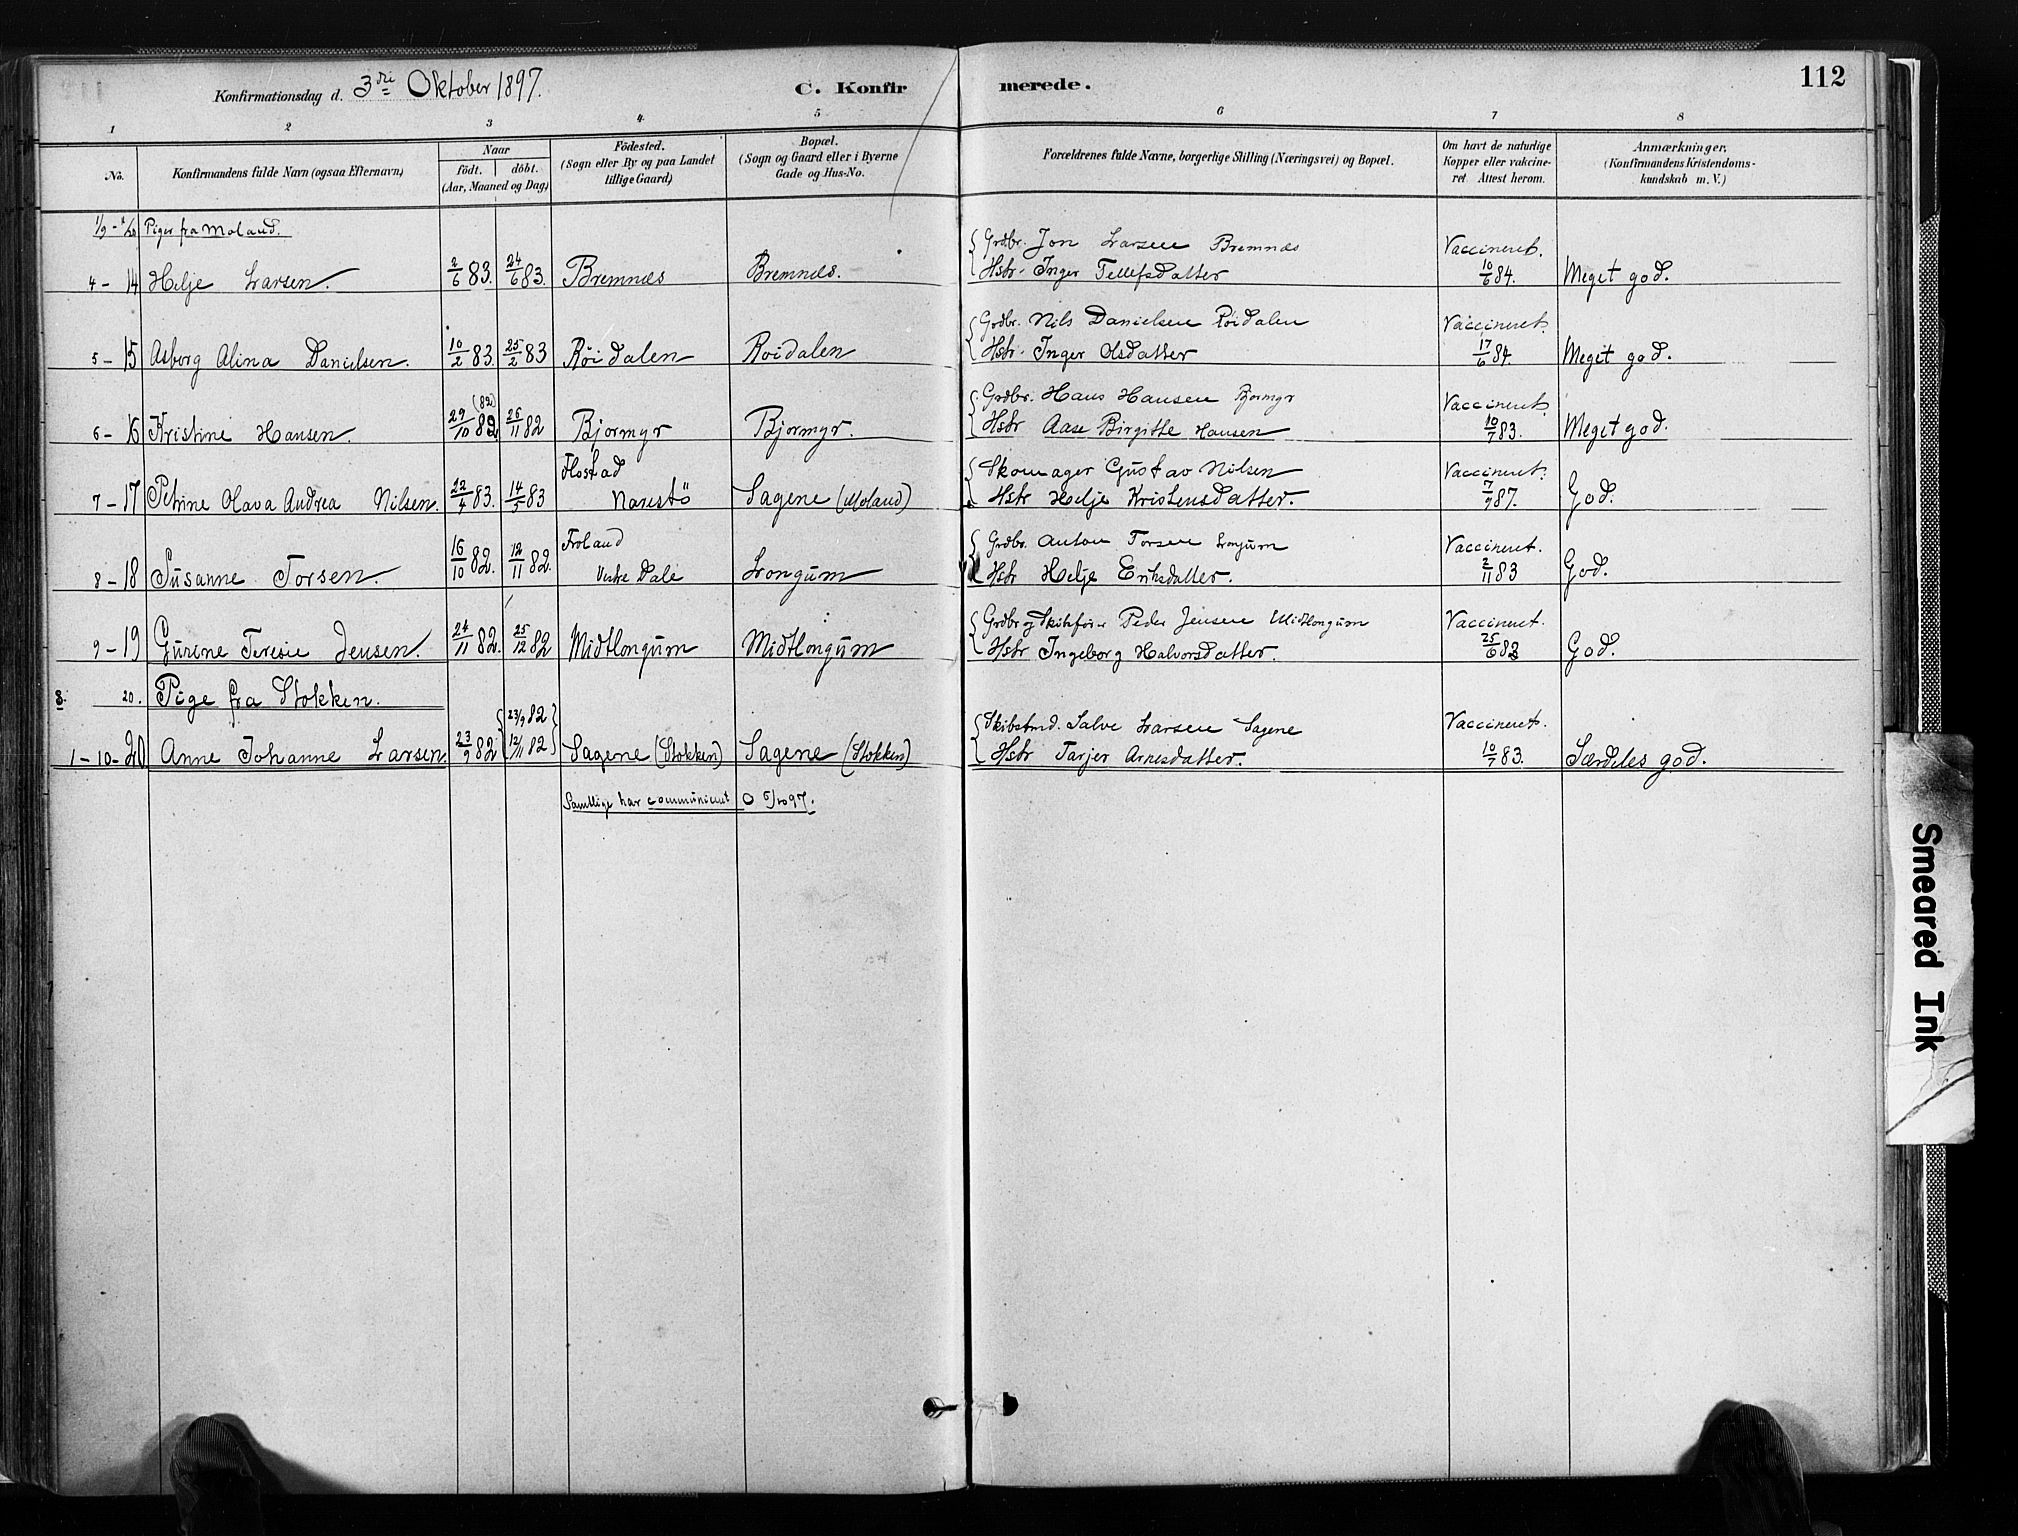 Konfirmationsdag d. 3die Oktober 1897. C. Konfirmerede. 112
1 2 3 4 5 6 7 8
No. Konfirmandens fulde Navn (ogsaa Efternavn) Naar födt. döbt. (Aar, Maaned og Dag) Födested. (Sogn eller By og paa Landet tillige Gaard) Bopæl. (Sogn og Gaard eller i Byerne Gade og Hus-No. Forældrenes fulde Navne, borgerlige Stilling (Næringsvei) og Bopæl. Om havt de naturlige Kopper eller vakcineret. Attest herom. Anmærkninger. (Konfirmandens Kristendomskundskab m. V.)
Piger fra Moland.
{ Grdbr. Jon Larsen Bremnæs Vaccineret.
4 - 14 Helje Larsen. 2/6 83. 24/6 83. Bremnæs Bremnæs. Hstr. Inger Tellefsdatter 10/6 84. Meget god.
{ Grdbr. Nils Danielsen Röidalen Vaccineret.
5 - 15 Asborg Alina Danielsen. 10/2 83. 25/2 83 Röidalen Roidalen Hstr. Inger Olsdatter 17/6 84. Meget god.
(82) { Grdbr. Hans Hansen Bjormyr Vaccineret.
6 - 16 Kristine Hansen. 29/10 82 26/11 82 Bjormyr Bjormyr. Hstr Aase Birgitte Hansen 10/7 83. Meget god.
Flostad { Skomager Gustav Nilsen Vaccineret.
7 - 17 Petrine Olava Andrea Nilsen. 22/4 83. 14/5 83 Narestö Sagene (Moland) Hstr Helje Kristensdatter. 7/9 87. God.
Froland { Grdbr. Anton Torsen Longum Vaccineret.
8 - 18 Susanne Torsen. 16/10 82. 12/11 82. Vestre Dale Longum Hstr Helje Eriksdatter. 2/11 83 God.
{ Grdbr og Skibsfører Peder Jensen Midtlongum Vaccineret.
9 - 19 Gurine Teresie Jensen. 24/11 82. 25/12 82 Midtlongum Midtlongum Hstr Ingeborg Halvorsdatter. 25/6 83 God.
S. 20. Pige fra Stokken.
{ 23/9 82 } { Skibstmd. Salve Larsen Sagene Vaccineret.
1 - 10 - 20 Anne Johanne Larsen. 23/9 82 12/11 82 Sagene (Stokken) Sagene (Stokken) Hstr Tarjer Arnesdatter. 10/7 83. Særdeles god.
Samtlige har communiceret 5/10 97.
Smeared Ink